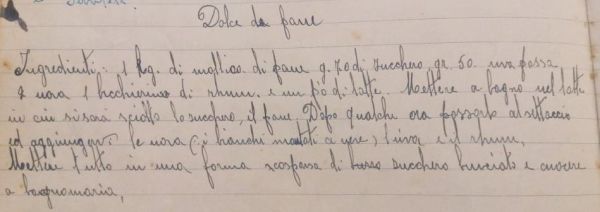 Dolce di pane
Ingredienti: 1 Kg. di mollica di pane g. 70 di zucchero gr. 50 uva passa
2 uova 1 bicchierino di rhum. e un pò di latte. Mettere a bagno nel latte
in cui si sarà sciolto lo zucchero, il pane. Dopo qualche ora passarlo al setaccio
ed aggiungervi le uova (i bianchi montati a neve) l'uva e il rhum,
Mettere tutto in una forma cosparsa di zucchero bruciato e cuocere
a bagnomaria,